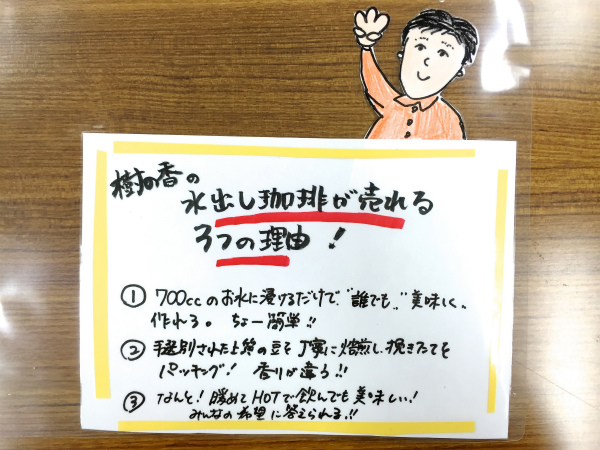 樹の香の
水出し珈琲が売れる
3つの理由!
① 700ccのお水に浸けるだけで、"誰でも"美味しく、
作れる。 ちょー簡単!!
② 手選別された上質の豆を丁寧に焙煎し、挽きたてを
パッキング! 香りが違う!!
③ なんと! 暖めてHOTで飲んでも美味しい!
みんなの希望に答えられる!!